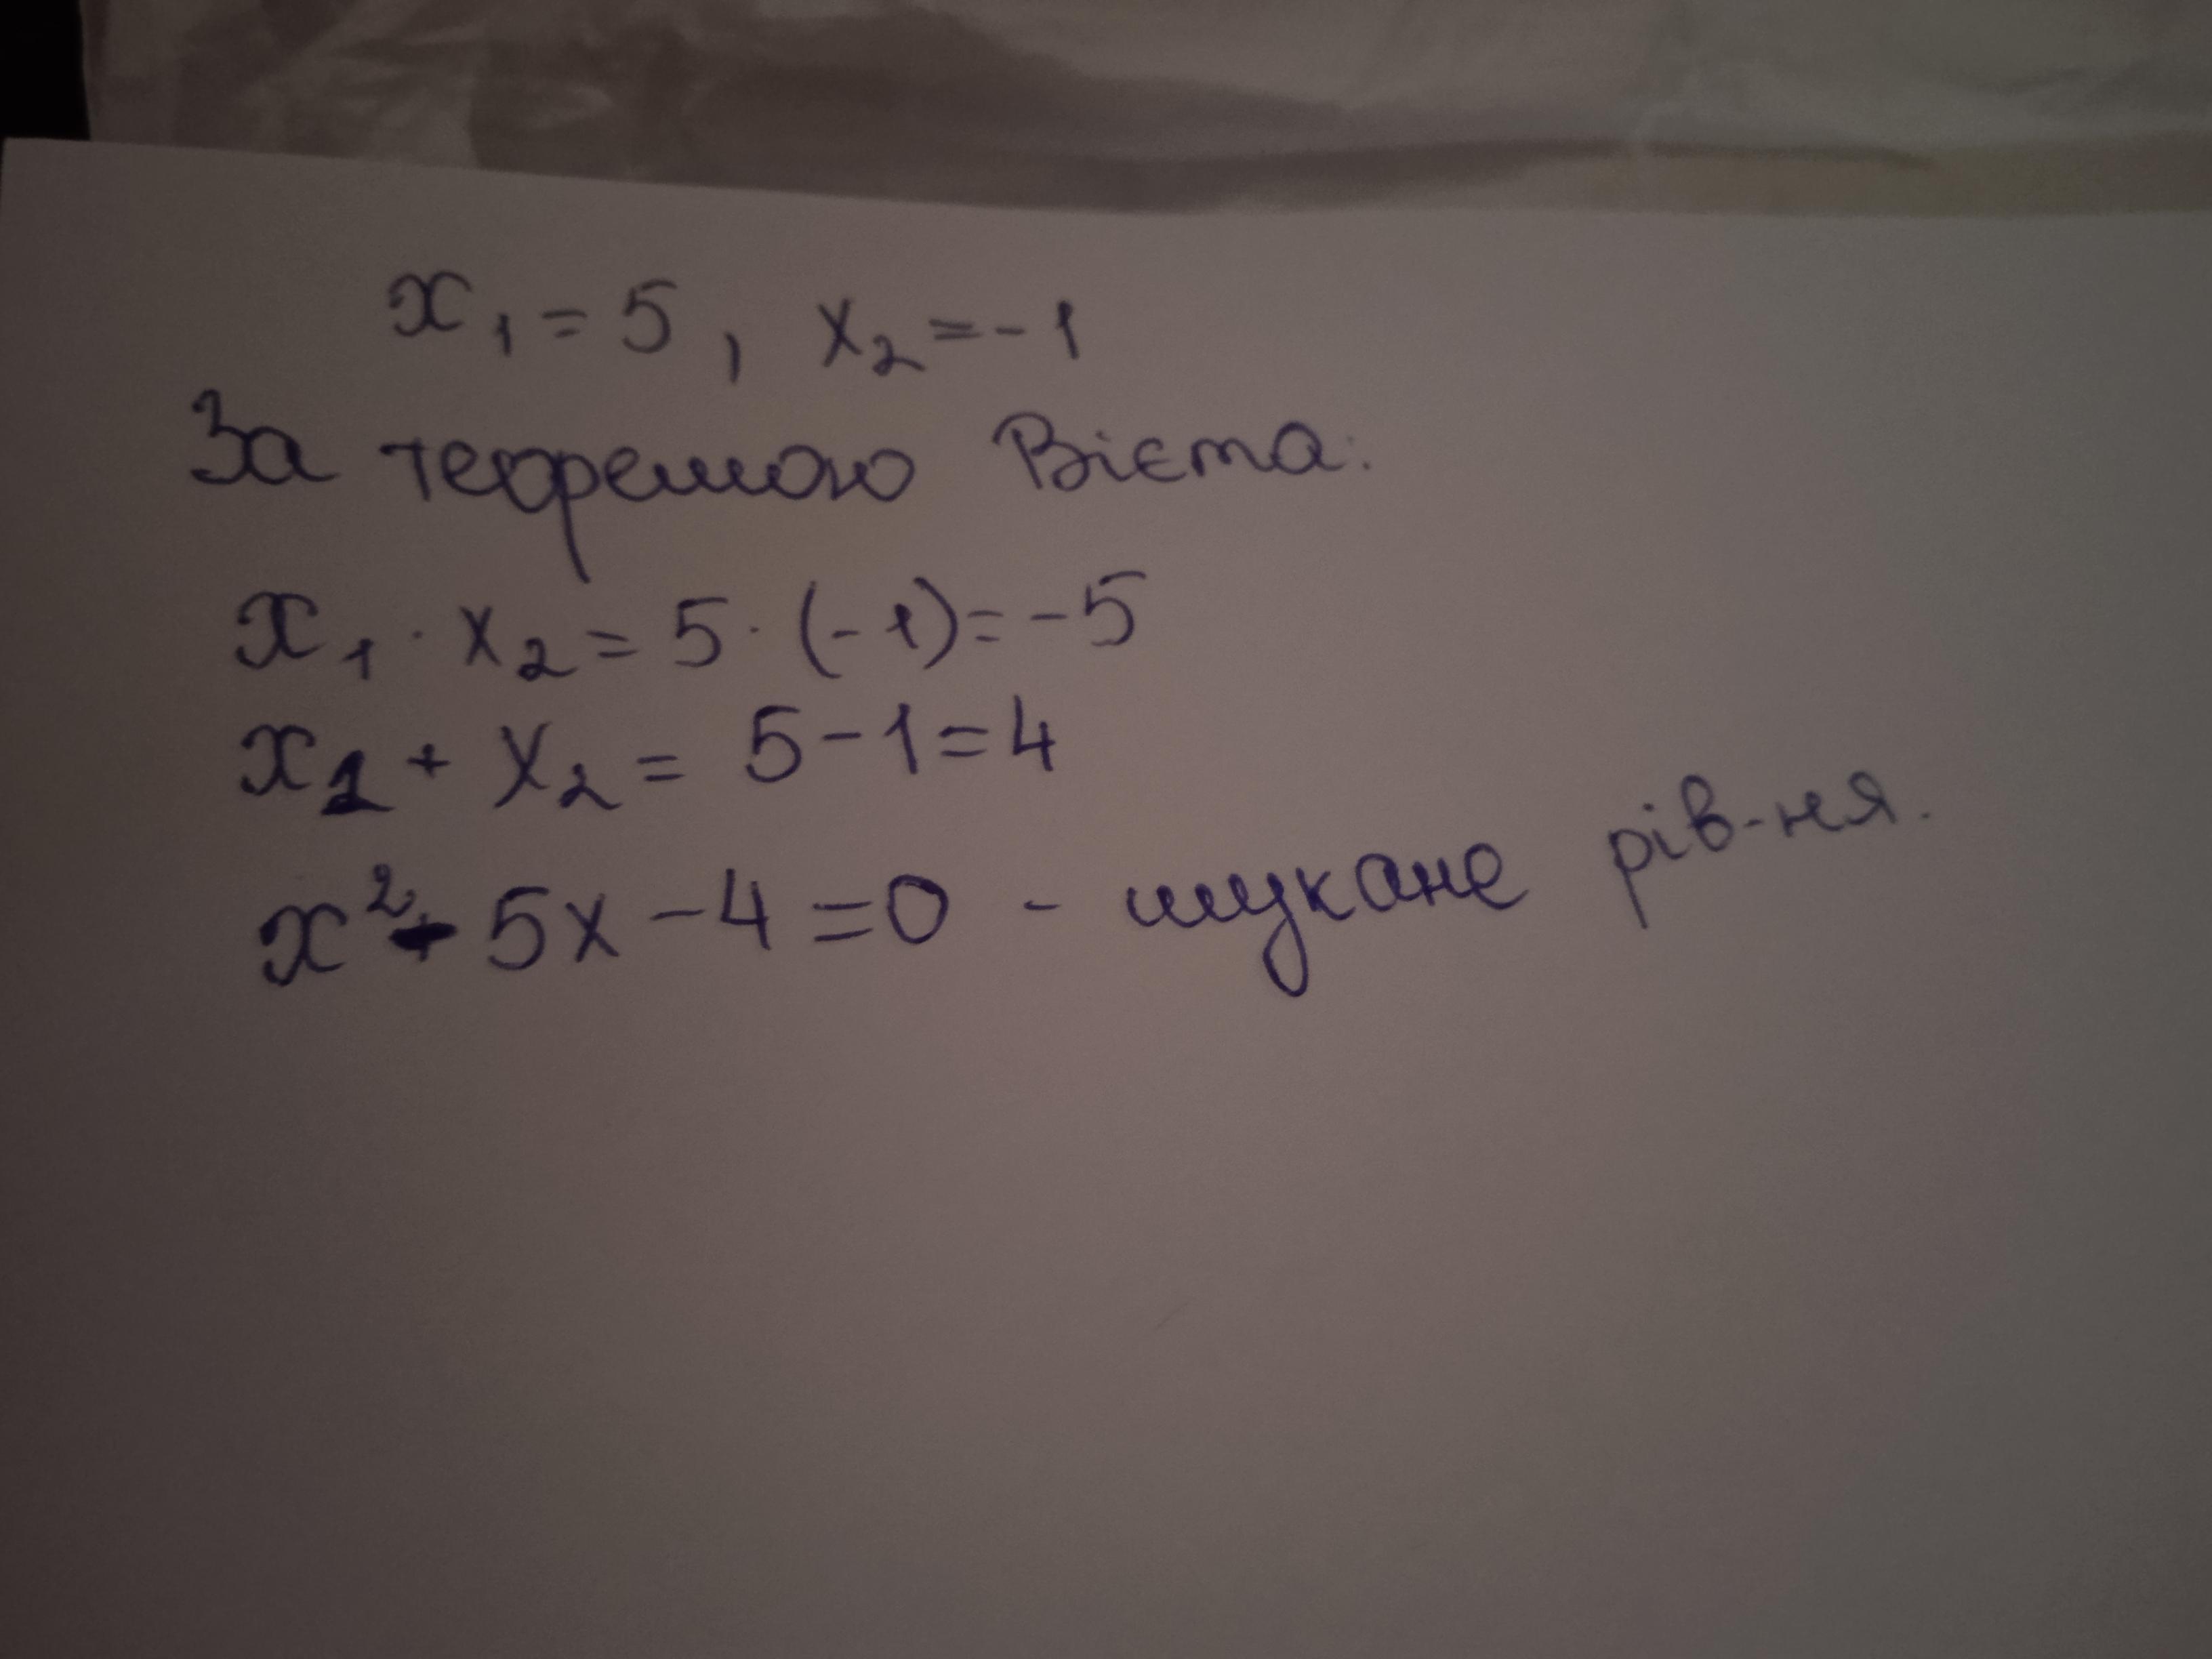 x₁ = 5, x₂ = -1
За теоремою Вієта:
x₁ · x₂ = 5 · (-1) = -5
x₁ + x₂ = 5 - 1 = 4
x² - 5x - 4 = 0 - шукане рів-ня.